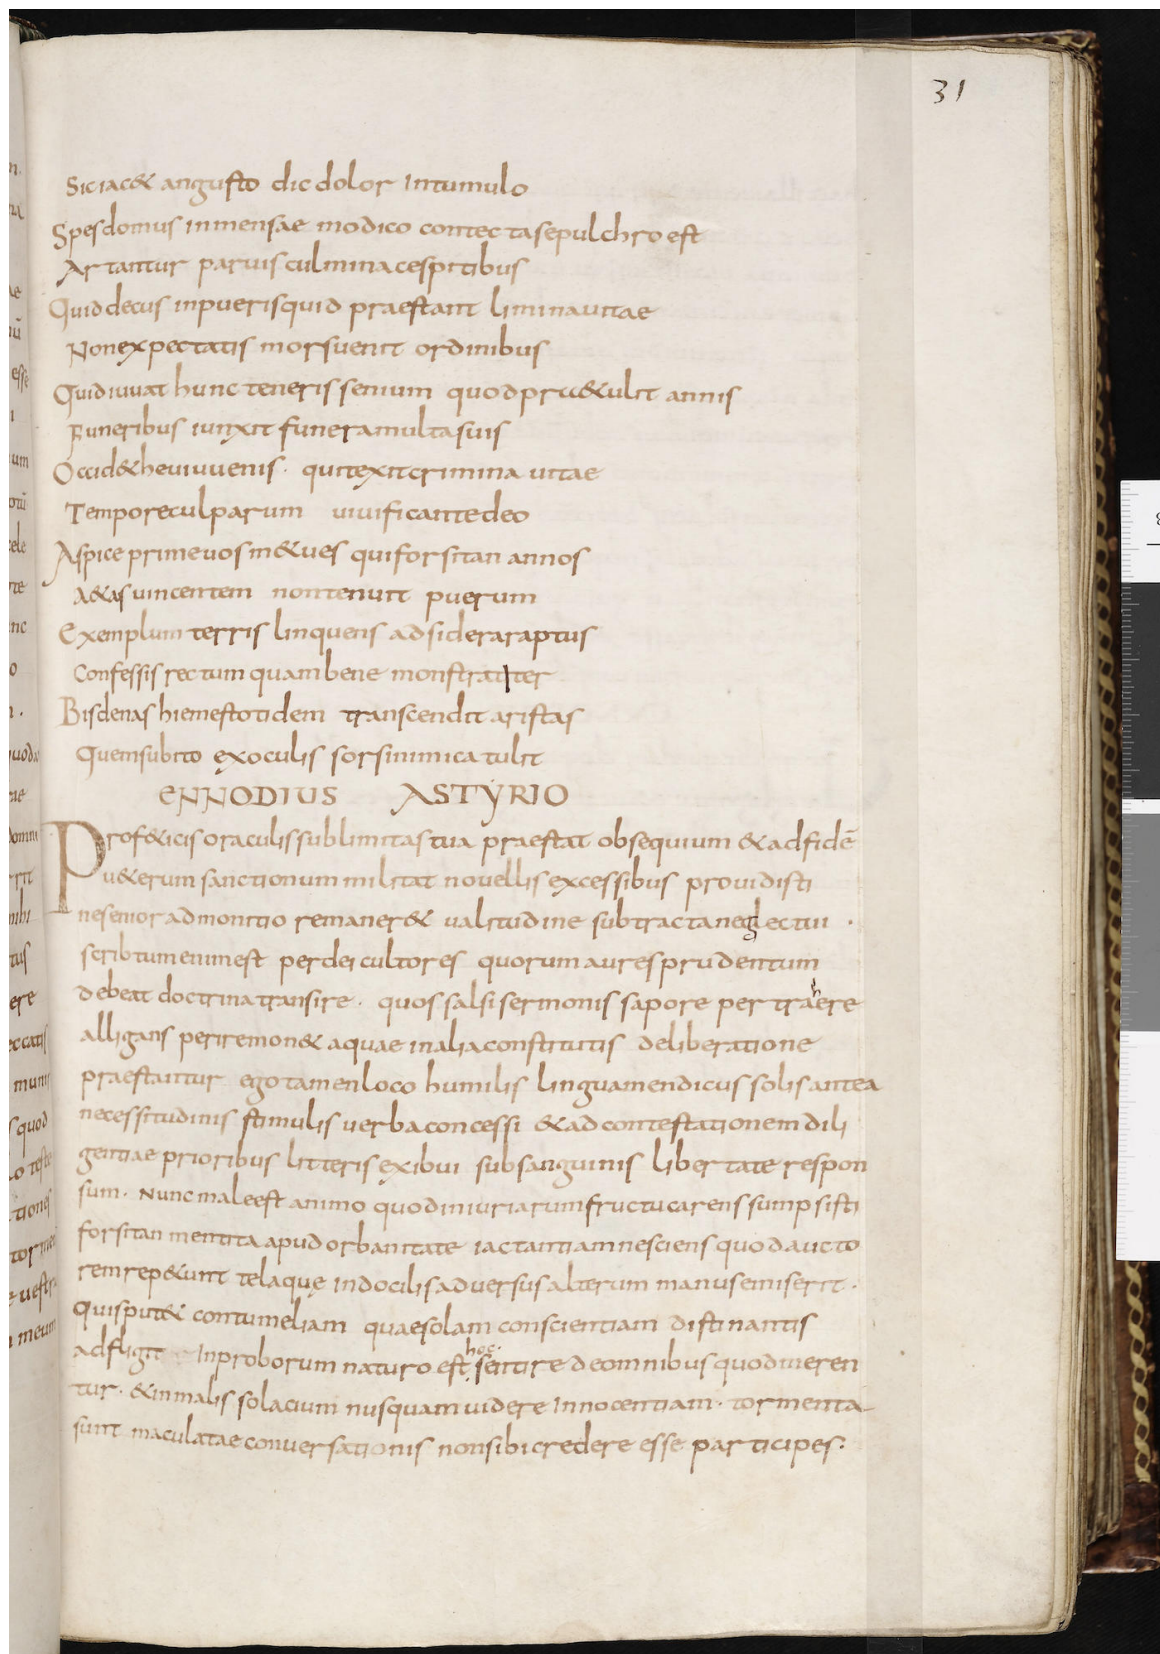 31
Sic iac& angusto dic dolor in tumulo
Spes domus inmensae modico contecta sepulchro est
Artantur parvis culmina cespitibus
Quid decus in pueris quid praestant limina vitae
Non expectatis mors venit ordinibus
Quid iuvat hunc teneris senium quod annis
Funeribus iunxit funera multa suis
Occid& heu iuvenis · qui texit crimina vitae
Tempore culparum vivificante deo
Aspice primevos m&ues qui forsitan annos
A&as vincentem non tenuit puerum
Exemplum terris linquens ad sidera raptus
Confessis rectum quam bene monstrat iter
Bisdenas hiemes totidem transcendit aristas
Quem subito ex oculis sors inimica tulit
ENNODIUS ASTYRIO
Prof&icis oraculis sublimitas tua praestat obsequium & ad fidē
u&erum sanctionum militat novellis excessibus providisti
ne senior admonitio remaner& valitudine subtracta neglectui ·
scribtum enim est per dei cultores quorum aures prudentum
debeat doctrina transire · quos salsi sermonis sapore pertrahere
alligans perire mon& aquae in alia constitutis deliberatione
praestantur ego tamen loco humilis lingua mendicus solis antea
necessitudinis stimulis verba concessi & ad contestationem dili
gentiae prioribus litteris exibui sub sanguinis libertate respon
sum · Nunc male est animo quod iniuriarum fructu carens sumpsisti
forsitan mentita apud orbanitate iactantiam nesciens quod aucto
rem rep&unt tela quę indocilis adversus alterum manus emiserit ·
Quis put& contumeliam quae solam conscientiam distinantis
adfligit Inproborum naturo est hoc · sentire de omnibus quod meren
tur · & in malis solacium nusquam videre Innocentiam · tormenta
sunt maculatae conversationis non sibi credere esse participes ·